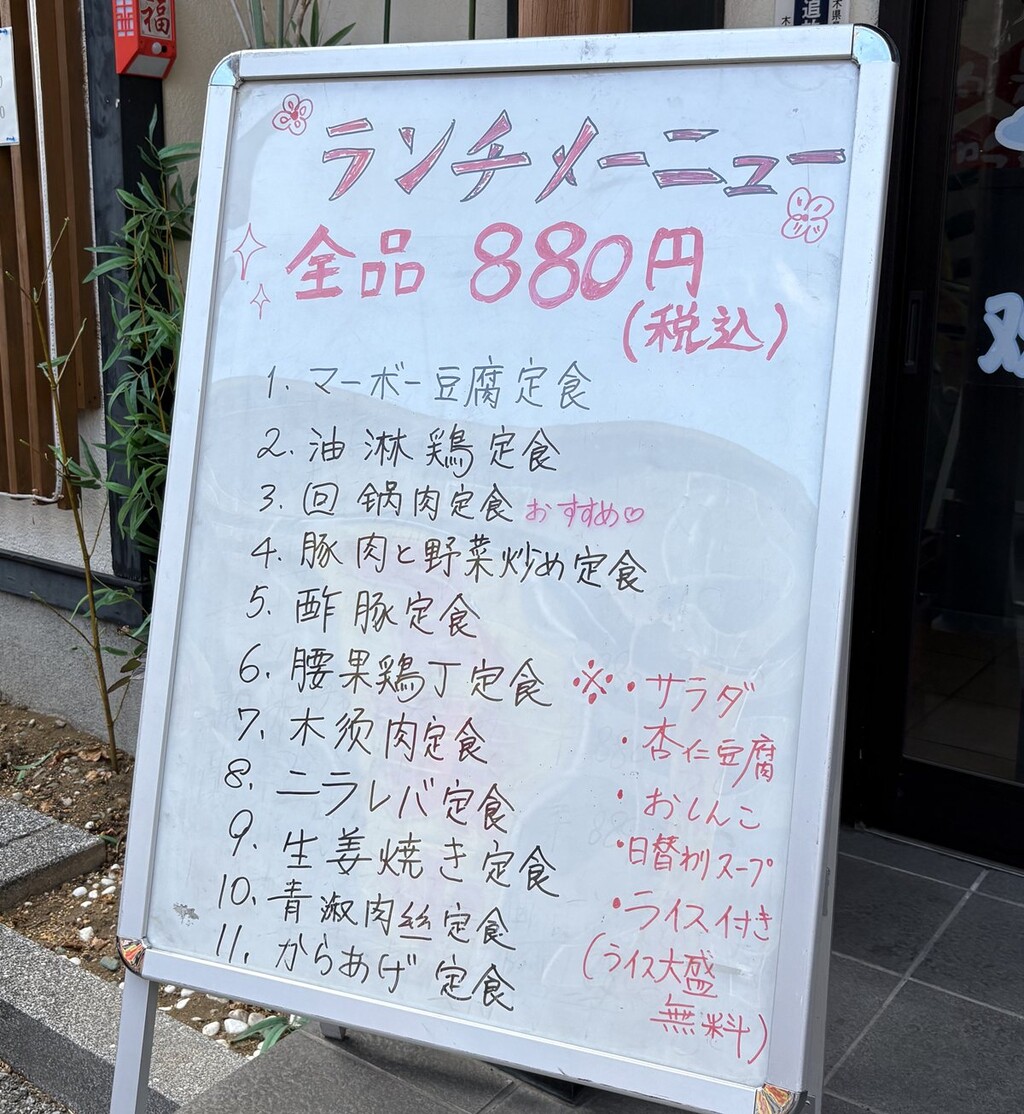 福
ランチメニュー
全品 880円
(税込)
1. マーボー豆腐定食
2. 油淋鶏定食
3. 回锅肉定食 おすすめ♡
4. 豚肉と野菜炒め定食
5. 酢豚定食
6. 腰果鶏丁定食
7. 木須肉定食
8. ニラレバ定食
9. 生姜焼き定食
10. 青淑肉丝定食
11. からあげ定食
※・サラダ
・杏仁豆腐
・おしんこ
・日替わりスープ
・ライス付き
(ライス大盛
無料)